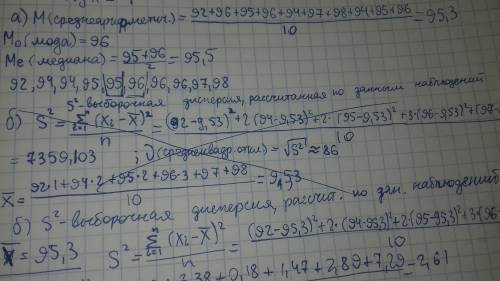 а) М (среднеарифметич.) = (92+96+95+96+94+97+98+94+95+96)/10 = 95,3
Мо (мода) = 96
Ме (медиана) = (95+96)/2 = 95,5
92, 94, 94, 95, 95, 96, 96, 96, 97, 98
S² - выборочная дисперсия, рассчитанная по данным наблюдений
б) S² = Σ (xᵢ - x̄)² / n = ((92-9,53)² + 2(94-9,53)² + 2·(95-9,53)² + 3·(96-9,53)² + (97-
= 7359,103 ; (среднеквадр. откл) = √S² ≈ 86
X̄ = (92·1+94·2+95·2+96·3+97+98)/10 = 9,53
б) S² - выборочная дисперсия, рассчит. по дан. наблюдений
X̄ = 95,3 S² = Σ (xᵢ - X̄)² / n = ((92-95,3)² + 2·(94-95,3)² + 2(95-95,3)² + 3·(96-
3,38 + 0,18 + 1,47 + 2,89 + 7,29 = 2,61